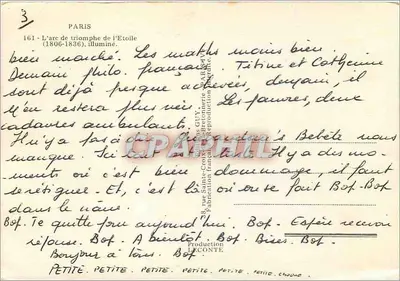 3
PARIS
161 - L'arc de triomphe de l'Etoile
(1806-1836), illuminé.
bien marché. Les maths moins bien.
Demain philo. français. Titine et Catherine
sont déjà presque achevées, demain, il
n'en restera plus rien. Les pauvres, deux
cadavres ambulants.
Il n'y a pas à dire Bébête nous
manque. Ici tout est triste. Il y a des mo-
ments où c'est bien dommage, il faut
se résigner. Et, c'est là où on te fait Bof-Bof
dans le
Bof. Te quitte pour aujourd'hui. Bof. Espère recevoir
réponse. Bof. A bientôt. Bof. Bises. Bof.
Bonjour à tous. Bof.
PETITE. PETITE. PETITE. PETITE. PETITE. PETITE.
Production
LECONTE
CPAPHIL